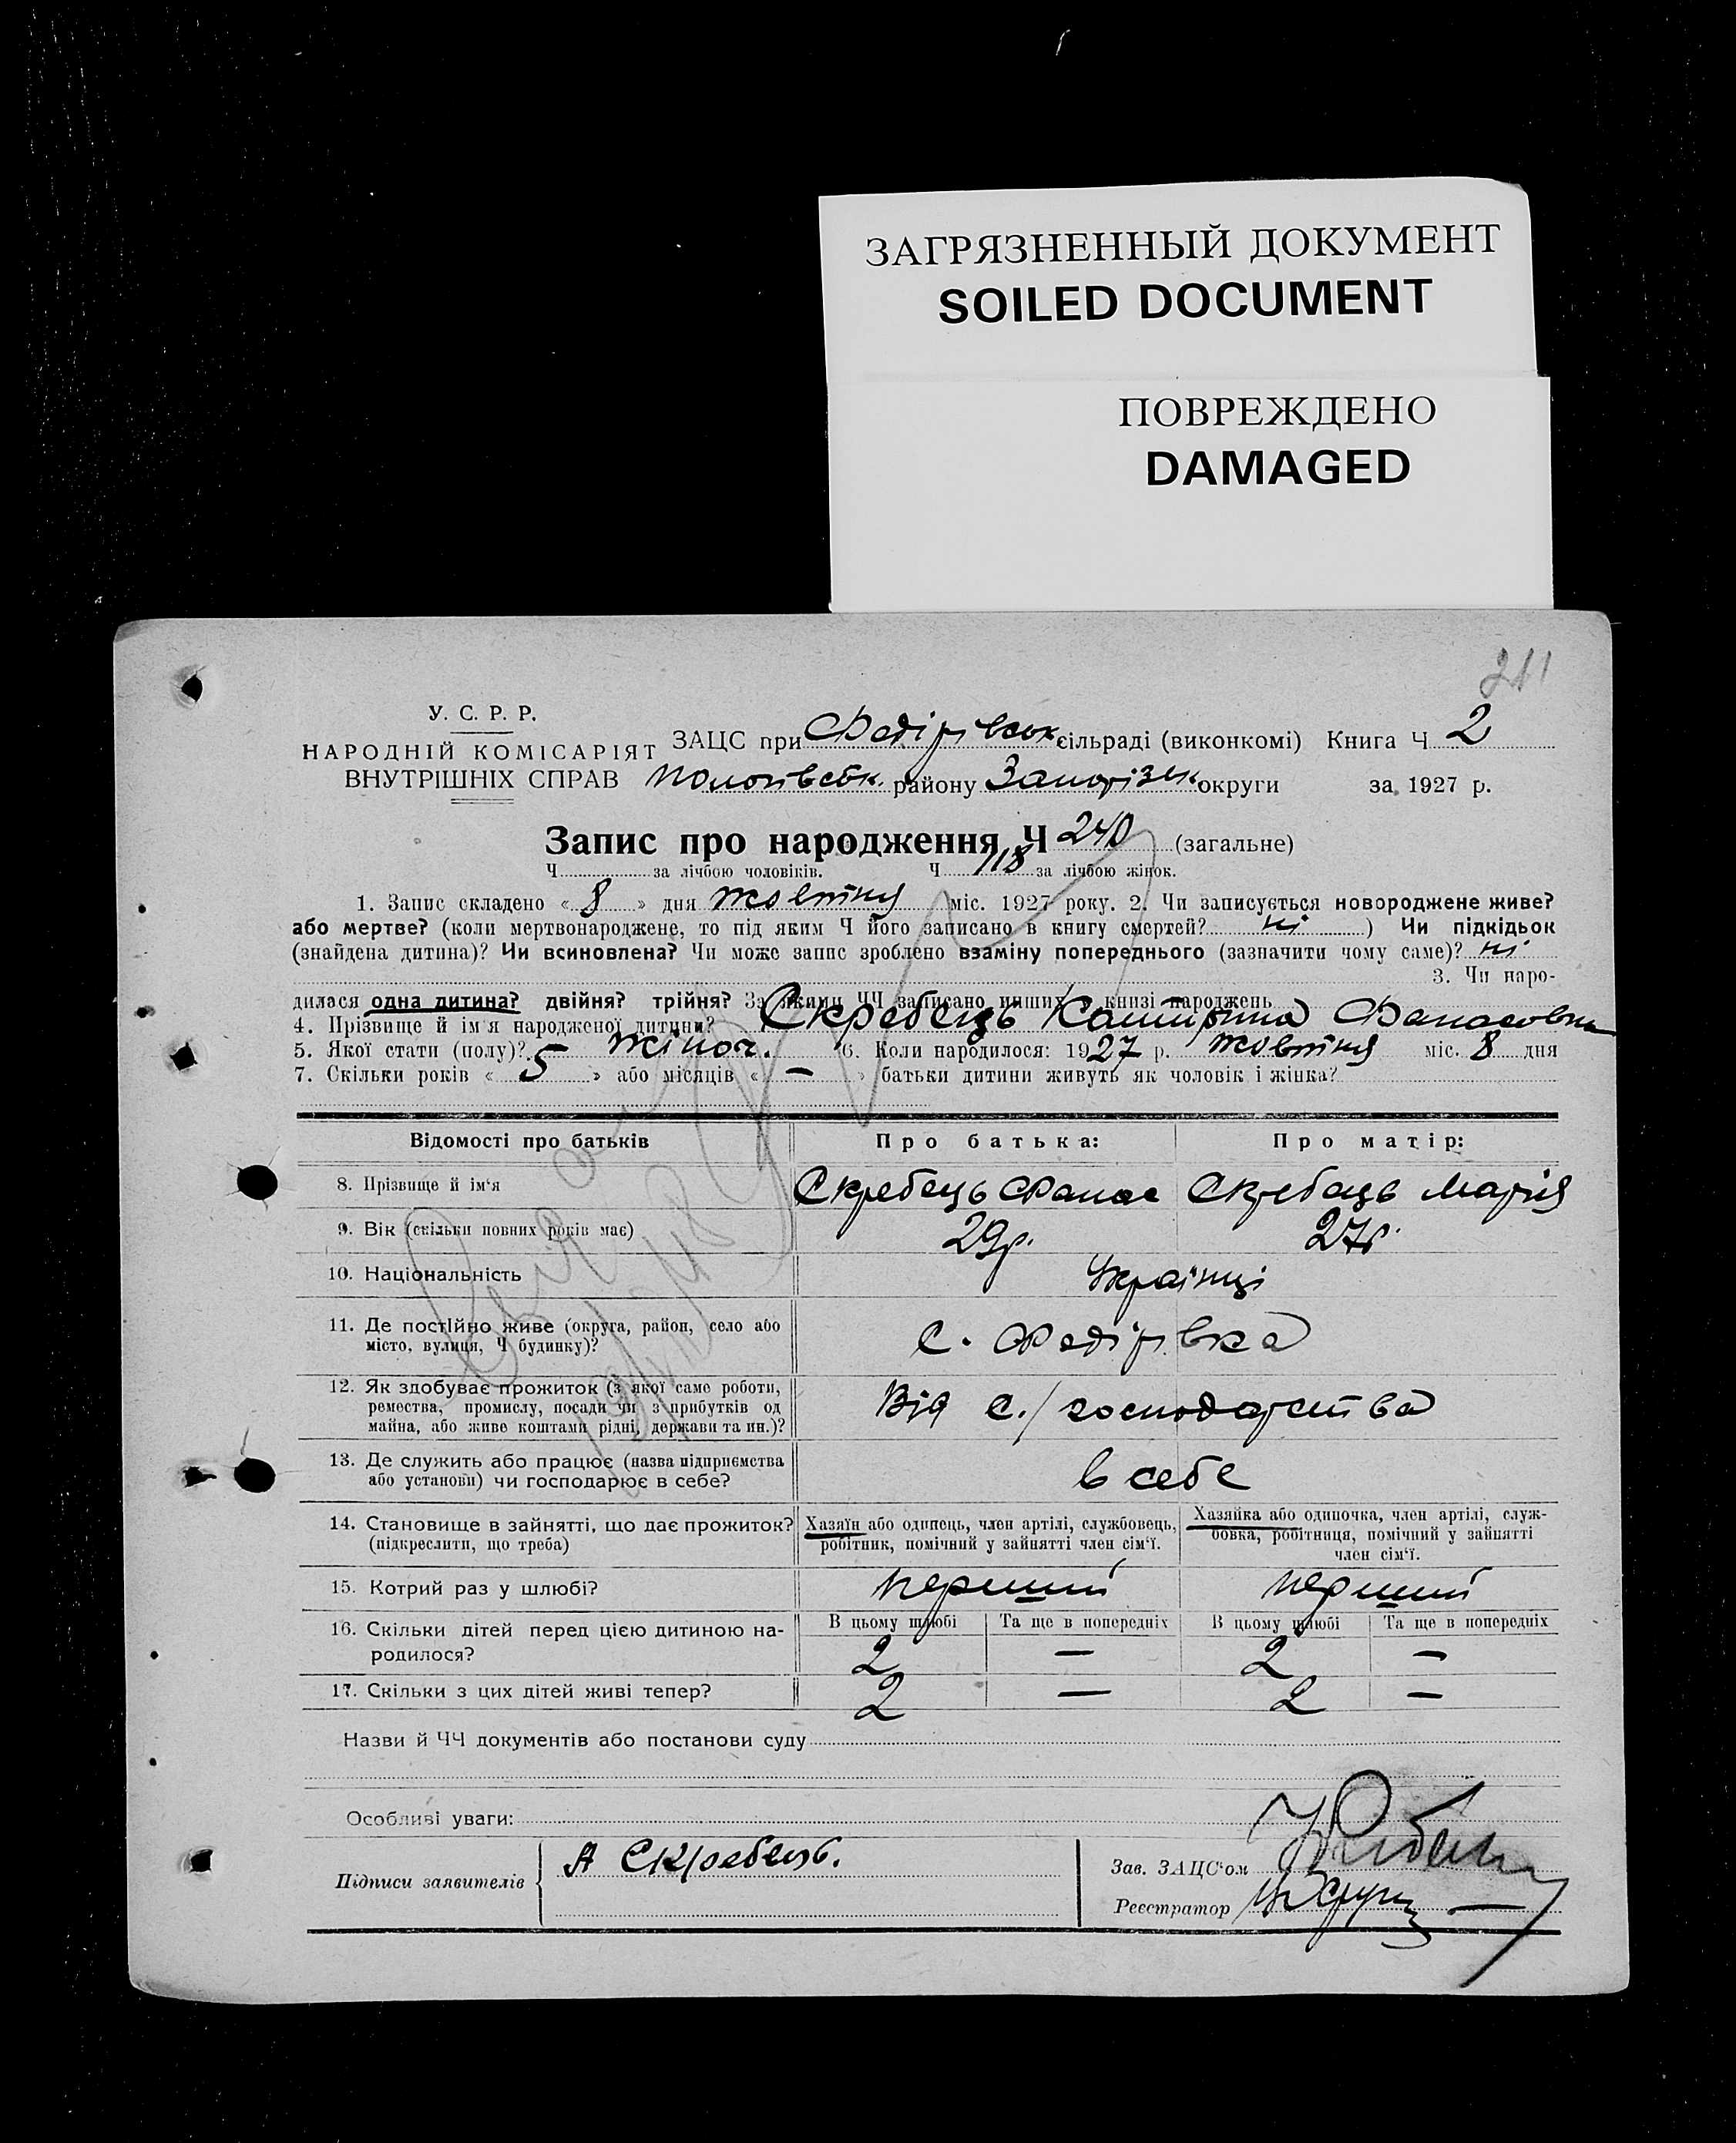 ЗАГРЯЗНЕННЫЙ ДОКУМЕНТ
SOILED DOCUMENT
ПОВРЕЖДЕНО
DAMAGED
241
У. С. Р. Р.
НАРОДНІЙ КОМІСАРІЯТ
ВНУТРІШНІХ СПРАВ
ЗАЦС при Федірівськ сільраді (виконкомі) Книга Ч 2
Пологівськ. району Запорізьк округи за 1927 р.
Запис про народження Ч 240 (загальне)
Ч за лічбою чоловіків. Ч 118 за лічбою жінок.
1. Запис складено « 8 » дня жовтня міс. 1927 року. 2. Чи записується новороджене живе?
або мертве? (коли мертвонароджене, то під яким Ч його записано в книгу смертей? ні ) Чи підкідьок
(знайдена дитина)? Чи всиновлена? Чи може запис зроблено взаміну попереднього (зазначити чому саме)? ні
3. Чи наро-
дилася одна дитина? двійня? трійня? За якими ЧЧ записано инших в книзі народжень
4. Прізвище й ім'я народженої дитини? Скребець Катирина Фанасовна
5. Якої стати (полу)? жіноч. 6. Коли народилося: 1927 р. жовтня міс. 8 дня
7. Скільки років « 5 » або місяців « — » батьки дитини живуть як чоловік і жінка?
Відомості про батьків Про батька: Про матір:
8. Прізвище й ім'я Скребець Фанас Скребець Марія
9. Вік (скільки повних років має) 29р. 27р.
10. Національність Українці
11. Де постійно живе (округа, район, село або
місто, вулиця, Ч будинку)? С. Федірівка
12. Як здобуває прожиток (з якої саме роботи,
ремества, промислу, посади чи з прибутків од
майна, або живе коштами рідні, держави та ин.)? Від с./господарства
13. Де служить або працює (назва підприємства
або установи) чи господарює в себе? в себе
14. Становище в зайнятті, що дає прожиток?
(підкреслити, що треба)
Хазяїн або одинець, член артілі, службовець,
робітник, помічний у зайнятті член сім'ї.
Хазяйка або одиночка, член артілі, служ-
бовка, робітниця, помічний у зайнятті
член сім'ї.
15. Котрий раз у шлюбі? перший перший
16. Скільки дітей перед цією дитиною на-
родилося?
В цьому шлюбі Та ще в попередніх В цьому шлюбі Та ще в попередніх
2 — 2 —
17. Скільки з цих дітей живі тепер? 2 — 2 —
Назви й ЧЧ документів або постанови суду
Особливі уваги:
Підписи заявителів А Скребець.
Зав. ЗАЦС'ом
Реєстратор